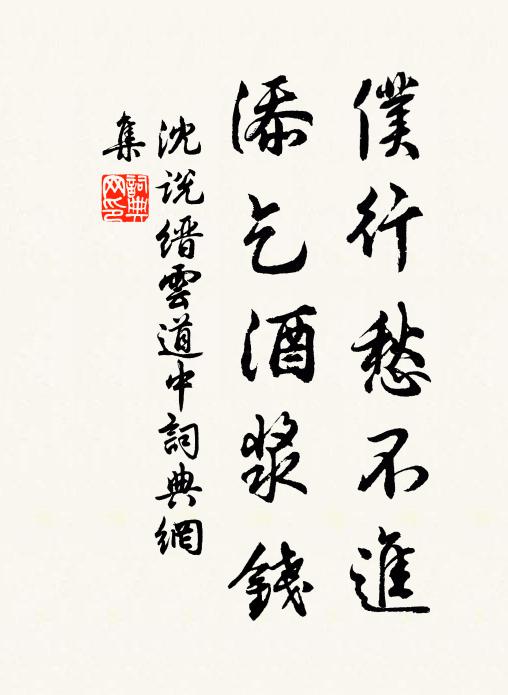 僕行愁不進
添乞酒漿錢
沈説縉雲道中詞典網
集
詞典
网印